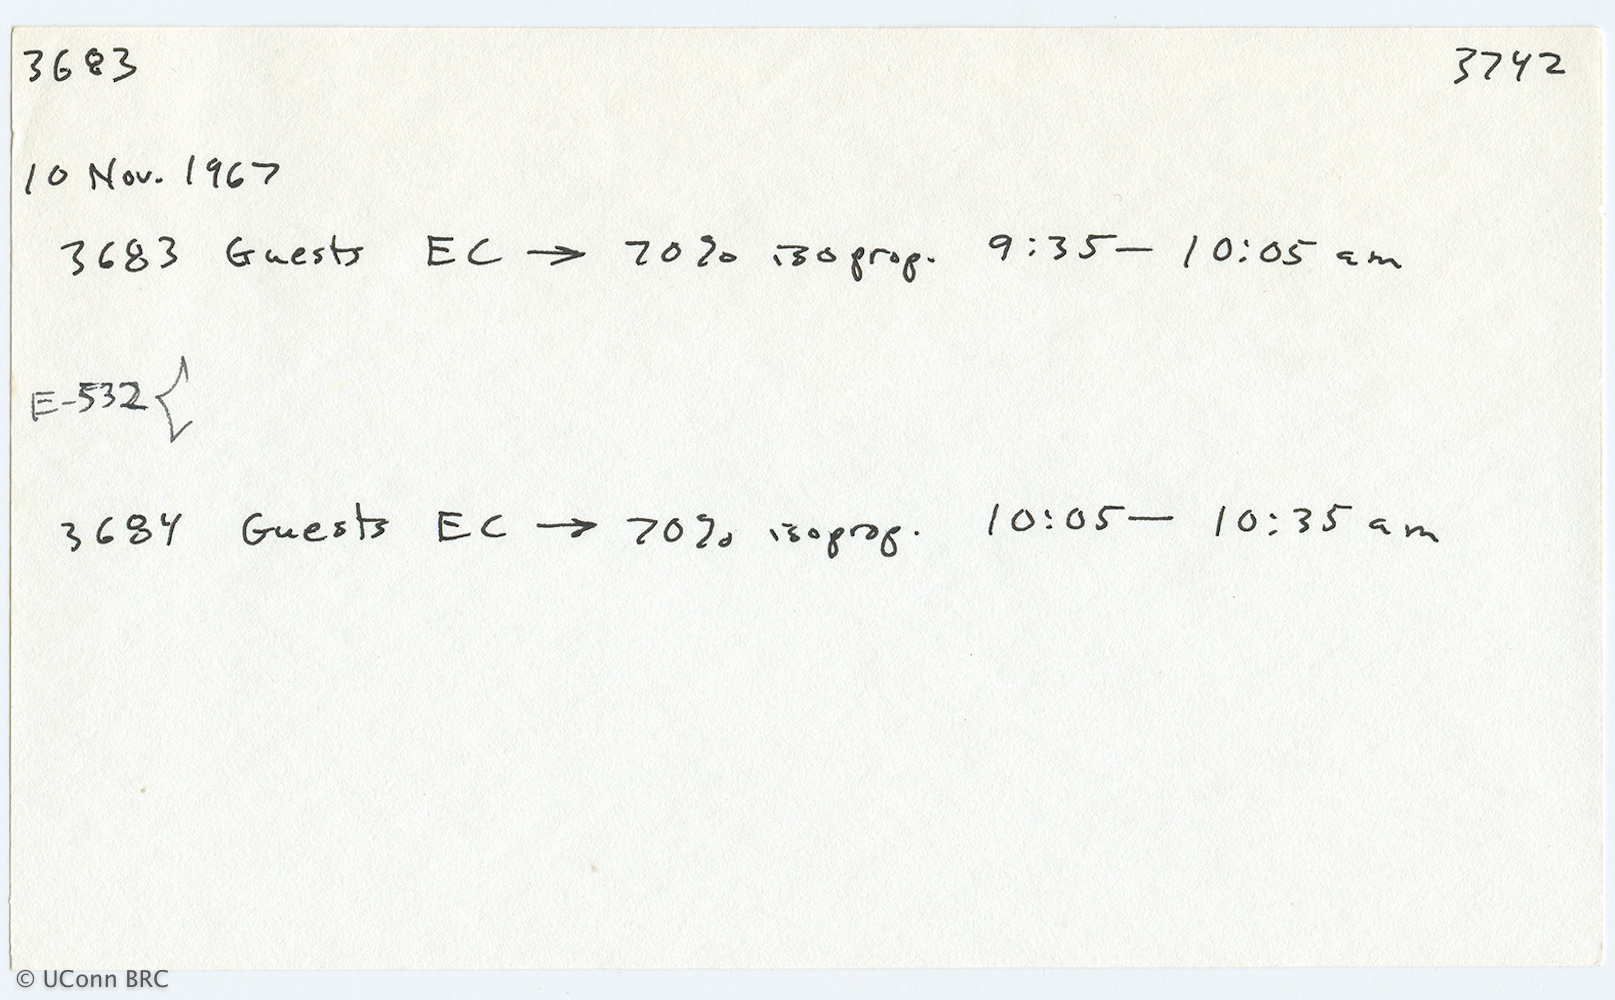 3683 3742
10 Nov. 1967
3683 Guests EC → 70% isoprop. 9:35— 10:05 am
E-532 {
3684 Guests EC → 70% isoprop. 10:05— 10:35 am
© UConn BRC